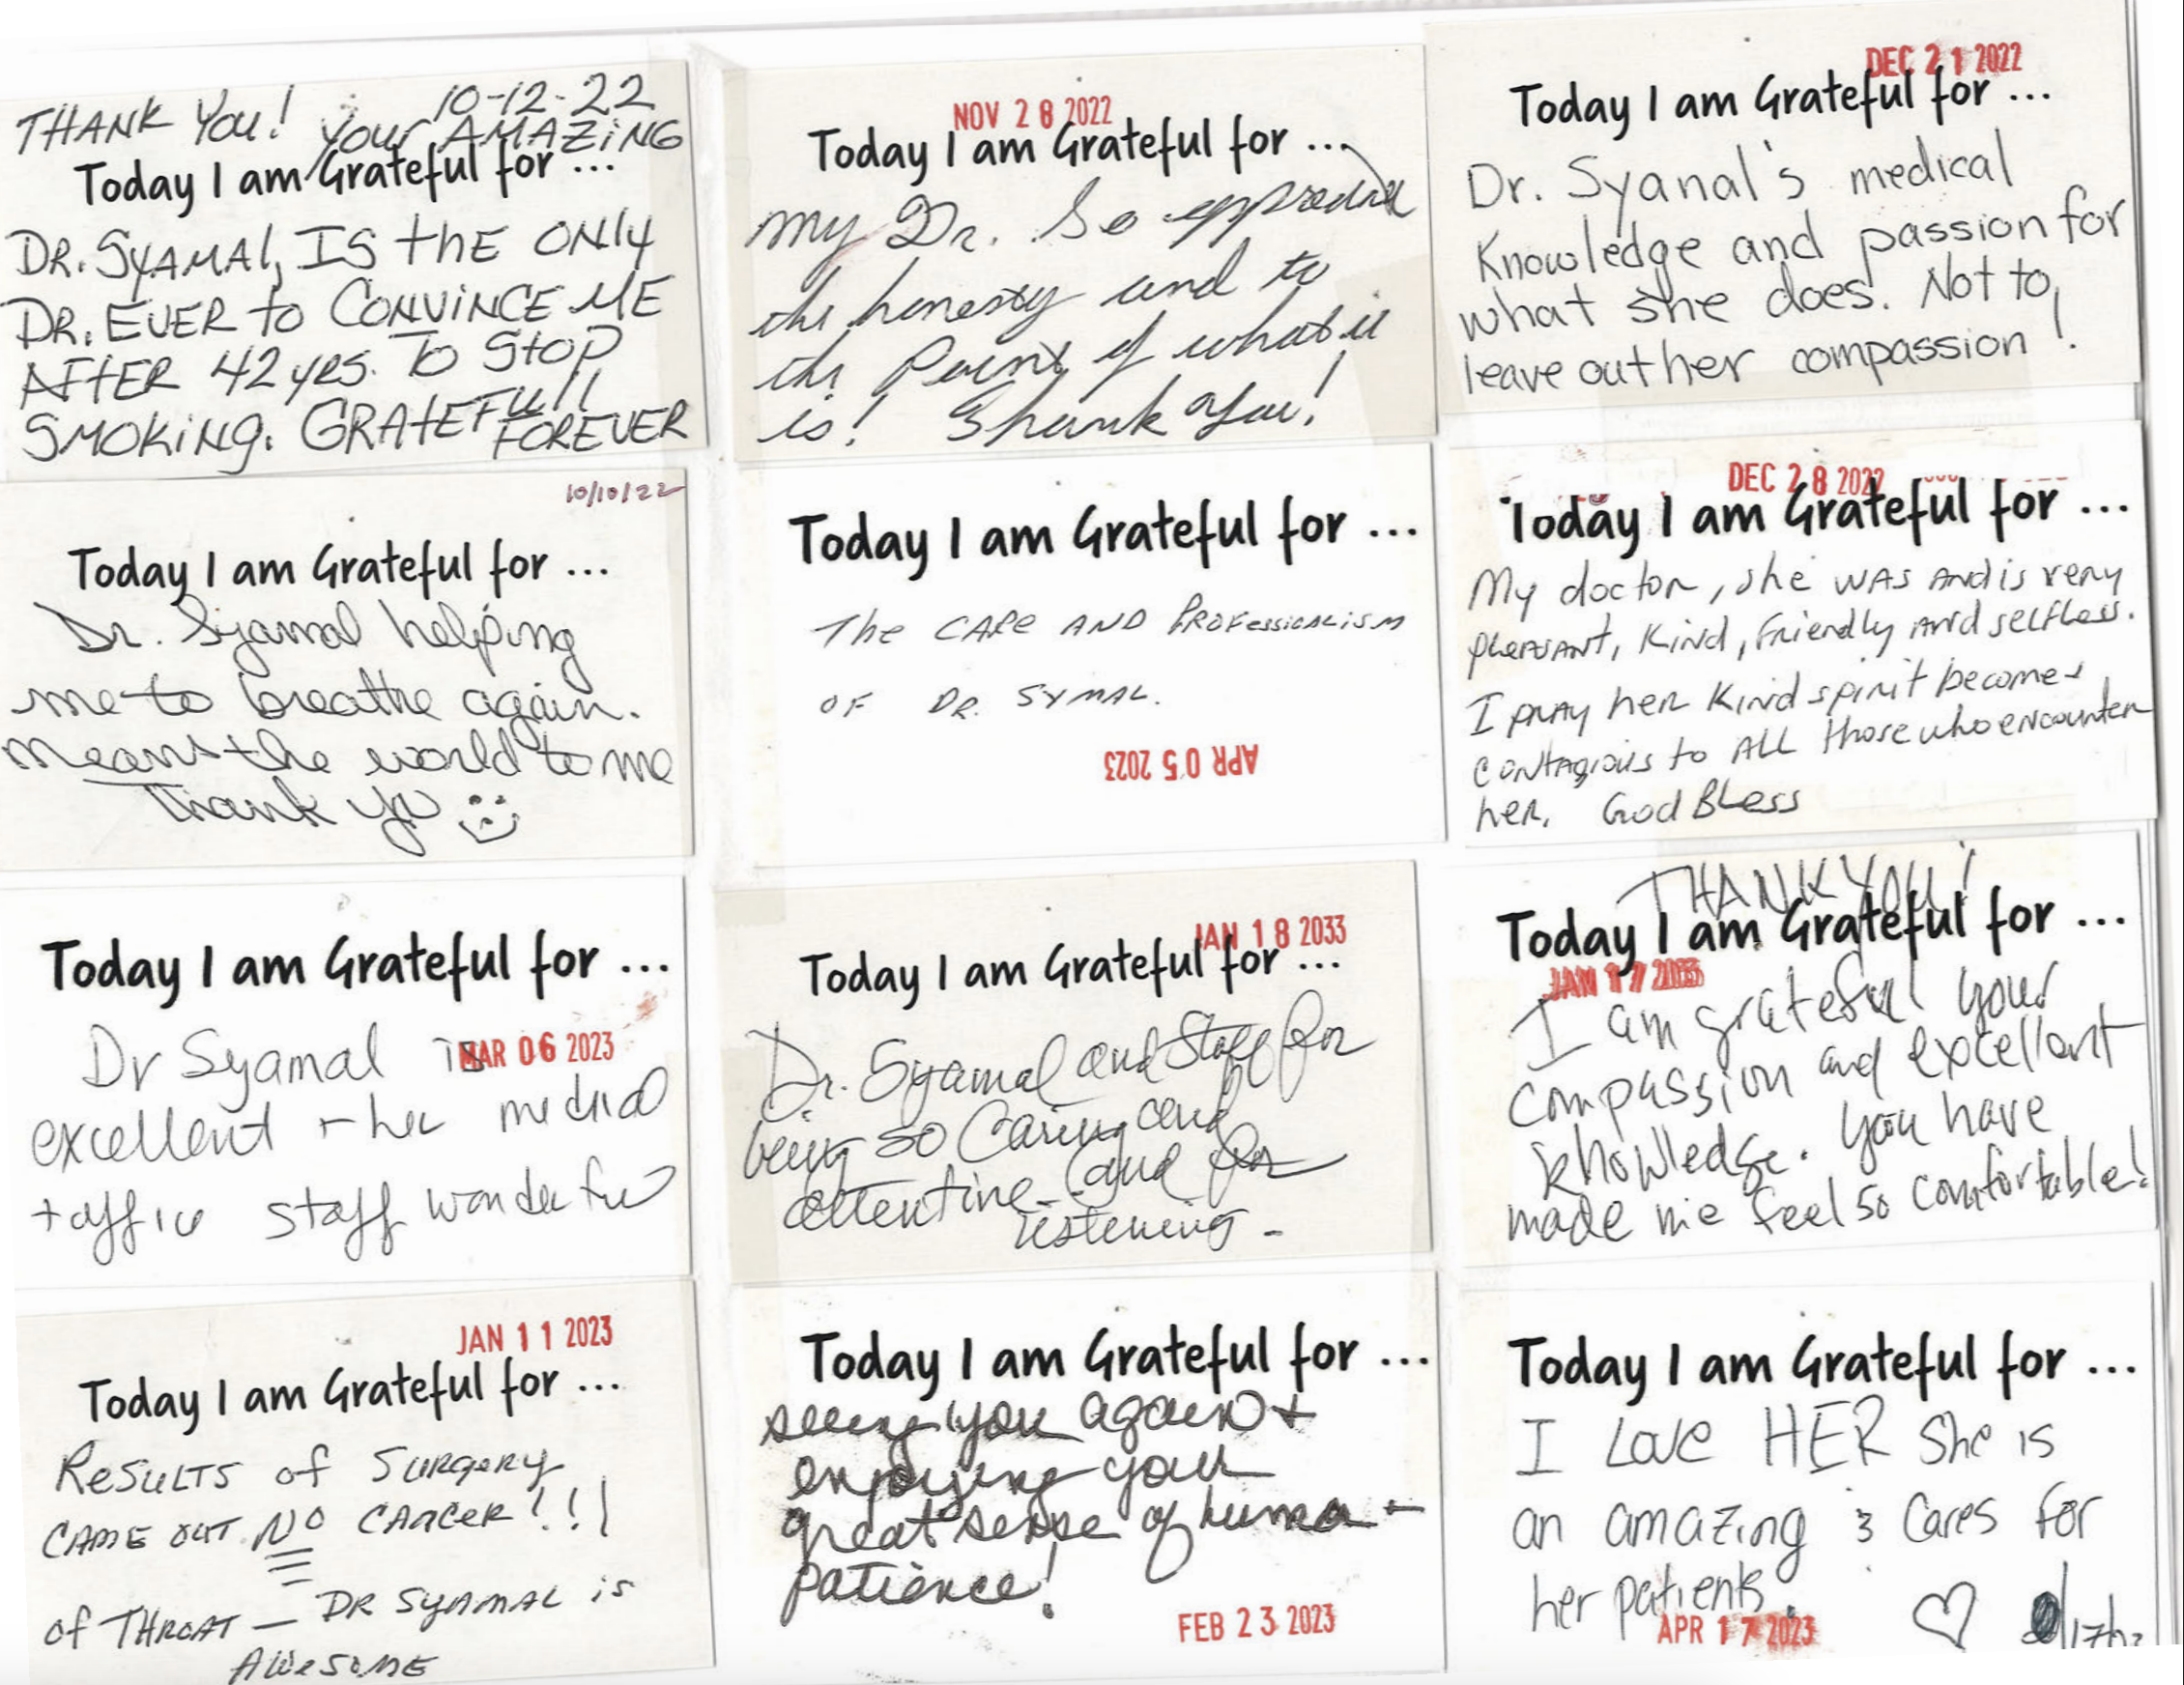 THANK YOU! 10-12-22
your AMAZING
Today I am Grateful for ...
DR. SYAMAL, IS thE ONly
DR. EVER to CONVINCE ME
AFtER 42 yrs. To StOP
SMOKiNG. GRAtEFUll
FOREVER
10/10/22
Today I am Grateful for ...
Dr. Syamal helping
me to breathe again.
Means the world to me
Thank yo
Today I am Grateful for ...
MAR 06 2023
Dr Syamal is
excellent + her medical
+ office staff wonderful
JAN 11 2023
Today I am Grateful for ...
Results of Surgery
CAME OUT NO CANCER!!!
of THROAT — DR SYAMAL is
AWESOME
NOV 28 2022
Today I am Grateful for ...
My Dr. So
the honesty and to
the Point of what it
is! Thank You!
Today I am Grateful for ...
The CARE AND PROFessionALiSM
OF DR. SYMAL.
APR 05 2023
JAN 18 2033
Today I am Grateful for ...
Dr. Syamal and Staff for
being so Caring and
attentive and for
listening -
Today I am Grateful for ...
seeing you again +
enjoying your
great sense of humor -
patience!
FEB 23 2023
DEC 21 2022
Today I am Grateful for ...
Dr. Syanal's medical
Knowledge and passion for
what she does. Not to
leave out her compassion!
DEC 28 2022
Today I am Grateful for ...
My doctor, she WAS And is very
pleasant, Kind, friendly And selfless.
I pray her Kind spirit becomes
contagious to ALL those who encounter
her. God Bless
THANK YOU!
Today I am Grateful for ...
JAN 17
I am grateful your
compassion and excellent
knowledge. You have
made me feel so comfortable!
Today I am Grateful for ...
I Love HER She is
an amazing & Cares for
her patients.
APR 17 2023